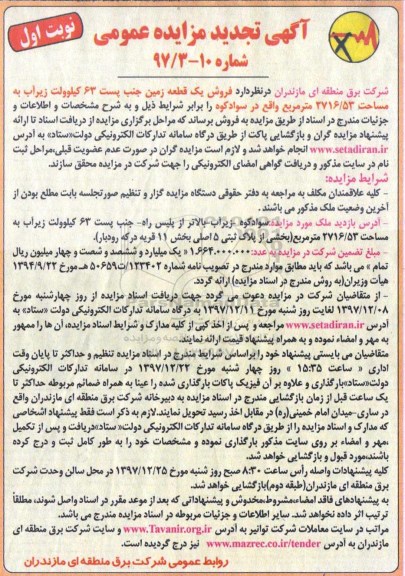 نوبت اول
آگهی تجدید مزایده عمومی
شماره ۱۰-۹۷/۳
شرکت برق منطقه ای مازندران درنظردارد فروش یک قطعه زمین جنب پست ۶۳ کیلوولت زیرآب به
مساحت ۲۷۱۶/۵۳ مترمربع واقع در سوادکوه را برابر شرایط ذیل و به شرح مشخصات و اطلاعات و
جزئیات مندرج در اسناد از طریق مزایده به فروش برساند که مراحل برگزاری مزایده از دریافت اسناد تا ارائه
پیشنهاد مزایده گران و بازگشایی پاکت از طریق درگاه سامانه تدارکات الکترونیکی دولت«ستاد» به آدرس
www.setadiran.ir انجام خواهد شد و لازم است مزایده گران در صورت عدم عضویت قبلی،مراحل ثبت
نام در سایت مذکور و دریافت گواهی امضای الکترونیکی را جهت شرکت در مزایده محقق سازند.
شرایط مزایده:
- کلیه علاقمندان مکلف به مراجعه به دفتر حقوقی دستگاه مزایده گزار و تنظیم صورتجلسه بابت مطلع بودن از
آخرین وضعیت ملک مذکور می باشند.
- آدرس بازدید ملک مورد مزایده:سوادکوه -زیراب بالاتر از پلیس راه- جنب پست ۶۳ کیلوولت زیرآب به
مساحت ۲۷۱۶/۵۳ مترمربع(بخشی از پلاک ثبتی ۵ اصلی بخش ۱۱ قریه درکه رودبار).
- مبلغ تضمین شرکت در مزایده به عدد: ۱,۶۶۴,۰۰۰,۰۰۰ «یک میلیارد و ششصد و شصت و چهار میلیون ریال
تمام » می باشد که باید مطابق موارد مندرج در تصویب نامه شماره ۱۲۳۴۰۲/ت۵۰۶۵۹هـ مورخ ۱۳۹۴/۹/۲۲
هیأت وزیران(به روش مندرج در اسناد مزایده) ارائه گردد.
- از متقاضیان شرکت در مزایده دعوت می گردد جهت دریافت اسناد مزایده از روز چهارشنبه مورخ
۱۳۹۷/۱۲/۰۸ لغایت روز شنبه مورخ ۱۳۹۷/۱۲/۱۱ به درگاه سامانه تدارکات الکترونیکی دولت «ستاد» به
آدرس www.setadiran.ir مراجعه و پس از اخذ کپی از کلیه مدارک و شرایط اسناد مزایده، آن ها را ممهور
به مهر و امضاء نموده و به همراه پیشنهاد قیمت ارائه نمایند.
متقاضیان می بایستی پیشنهاد خود را براساس شرایط مندرج در اسناد مزایده تنظیم و حداکثر تا پایان وقت
اداری « ساعت ۱۵:۳۵ » روز چهار شنبه مورخ ۱۳۹۷/۱۲/۲۲ در سامانه تدارکات الکترونیکی
دولت«ستاد»بارگذاری و علاوه بر آن فیزیک پاکات بارگذاری شده را عینا به همراه ضمائم مربوطه حداکثر تا
یک ساعت قبل از زمان بازگشایی مندرج در اسناد مزایده به دبیرخانه شرکت برق منطقه ای مازندران واقع
در ساری-میدان امام خمینی(ره) در مقابل اخذ رسید تحویل نمایند.لازم به ذکر است فقط پیشنهاد اشخاصی
که مدارک و اسناد مزایده را از طریق درگاه سامانه تدارکات الکترونیکی دولت«ستاد»دریافت و پس از تکمیل
،مهر و امضاء بر روی سایت مذکور بارگذاری نموده و مشخصات خود را به طور کامل ثبت و درج کرده
باشند،مورد قبول و بازگشایی خواهد شد.
کلیه پیشنهادات واصله رأس ساعت ۸:۳۰ صبح روز شنبه مورخ ۱۳۹۷/۱۲/۲۵ در محل سالن وحدت شرکت
برق منطقه ای مازندران(طبقه دوم)بازگشایی خواهد شد.
به پیشنهادهای فاقد امضاء،مشروط،مخدوش و پیشنهاداتی که بعد از موعد مقرر در اسناد واصل شوند، مطلقاً
ترتیب اثر داده نخواهد شد. سایر اطلاعات و جزئیات مربوطه در اسناد مزایده مندرج می باشد.
مراتب در سایت معاملات شرکت توانیر به آدرس www.Tavanir.org.ir و سایت شرکت برق منطقه ای
مازندران به آدرس www.mazrec.co.ir/tender نیز درج گردیده است.
روابط عمومی شرکت برق منطقه ای مازندران